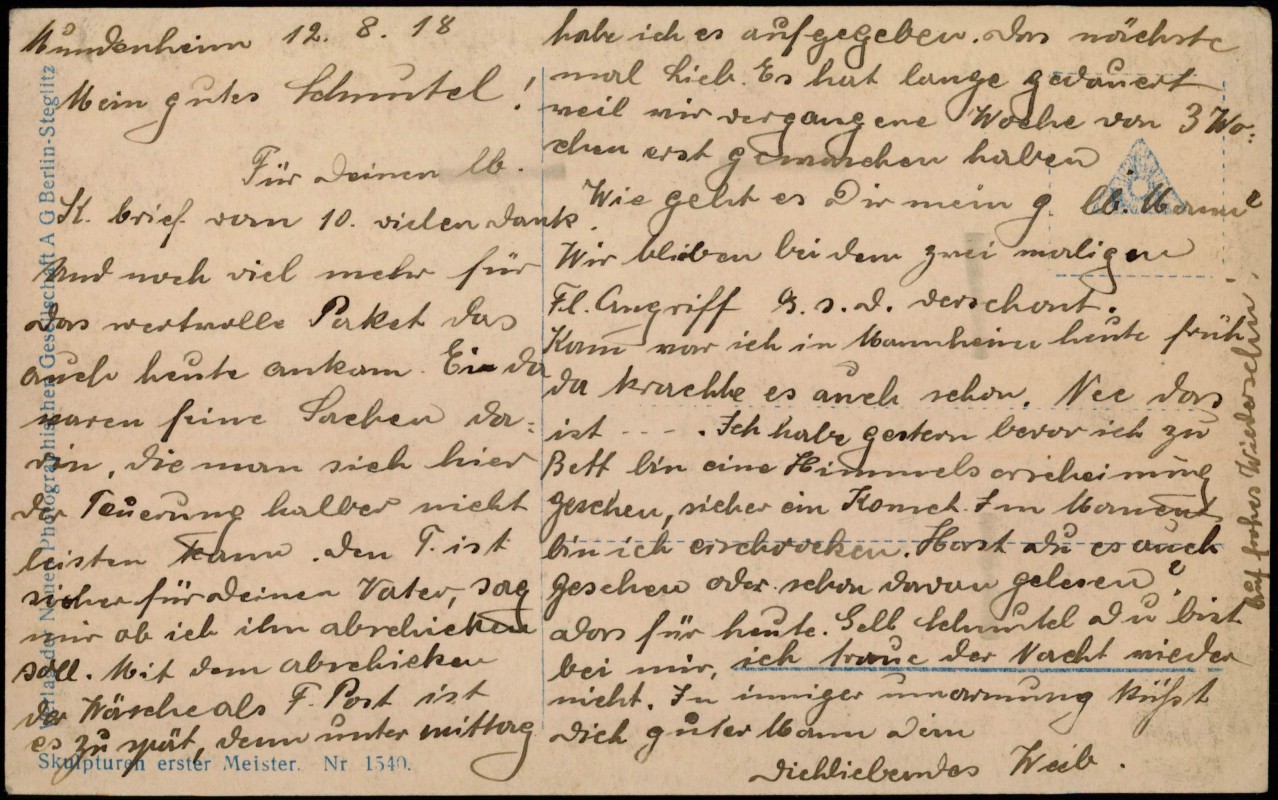 Mundenheim 12. 8. 18
Mein gutes Schnutel!
Für Deinen lb.
K. brief vom 10. vielen Dank.
Und noch viel mehr für
das wertvolle Paket das
auch heute ankam. Ei da
waren feine Sachen da=
rin, die man sich hier
der Teuerung halber nicht
leisten kann. Den T. ist
sicher für Deinen Vater, sag
mir ob ich ihn abschicken
soll. Mit dem abschicken
der Wäsche als F. Post ist
es zu spät, denn unter mittag
habe ich es aufgegeben. Das nächste
mal Lieb. Es hat lange gedauert
weil wir vergangene Woche von 3 Wo=
chen erst gewaschen haben
Wie geht es Dir mein g. lb. Mann?
Wir blieben bei dem zwei maligen
Fl. Angriff G. s. d. verschont.
Kam war ich in Mannheim heute früh
da krachte es auch schon. Nee das
ist - - - . Ich habe gestern bevor ich zu
Bett bin eine Himmelserscheinung
gesehen, sicher ein Komet. Im Moment
bin ich erschrocken. Hast du es auch
gesehen oder schon davon gelesen?
Das für heute. Gell Schnutel Du bist
bei mir, ich traue der Nacht wieder
nicht. In inniger umarmung küßt
Dich guter Mann Dein
Dichliebendes Weib.
Auf frohes Wiedersehn!
Verlag der Neuen Photographischen Gesellschaft A G Berlin-Steglitz
Skulpturen erster Meister. Nr 1540.